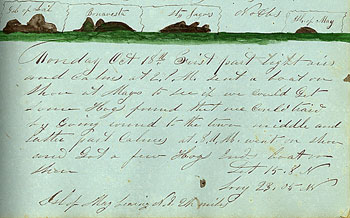 Isle of Salt Bonavesta St Jagos Nobbs Isle of May
Monday Oct 18th First part Light airs
and Calms at 2 P.M. sent a boat on
Shore at Mayo to see if we could Get
some Hogs found that we could trade
by Going round to the town middle and
latter part Calms at 7 A.M. went on Shore
and Got a few Hogs boat on
Shore Lat 15.8 N
Long 23.05 W
Isle of May bearing miles